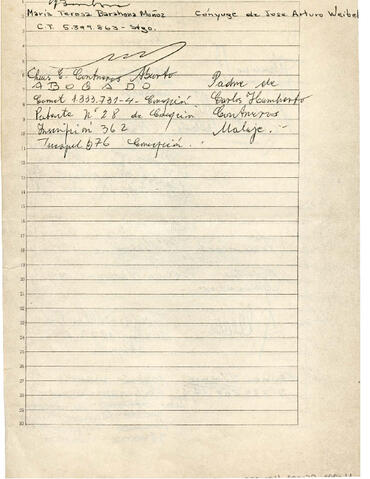 Maria Teresa Barahona Muñoz Cónyuge de Jose Arturo Weibel
C.T. 5.397.863- Stgo.
E. Contreras Padre de
ABOGADO Carlos Humberto
Carnet 1.333.731-4- Concepción Contreras
Patente N° 28 de Maluje.
Inscripción 362
Tucapel 576 Concepción.